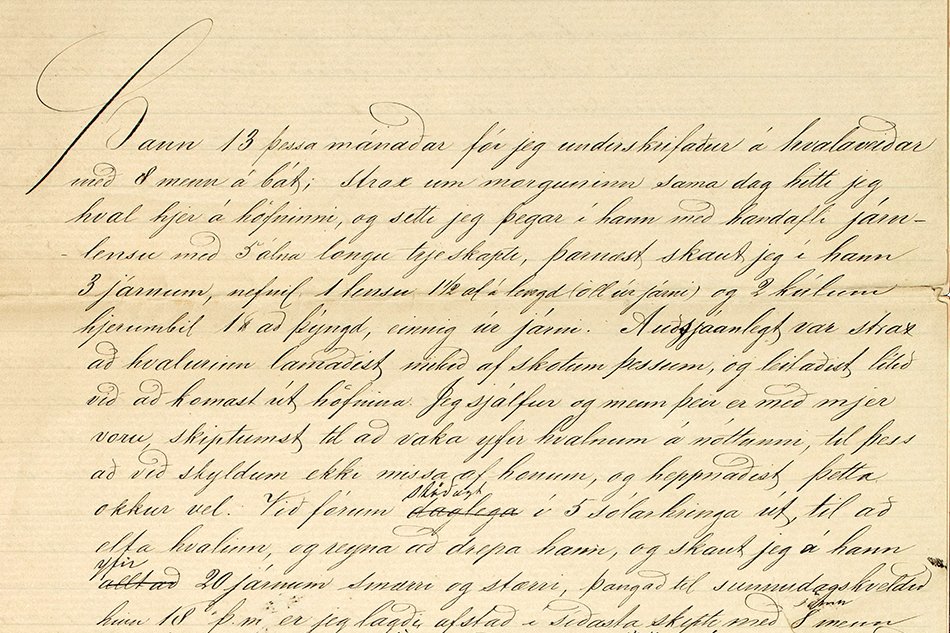 Þann 13 þessa mánaðar fór jeg underskrifaður á hvalaveiðar
með 8 menn á bát; strax um morguninn sama dag hitti jeg
hval hjer á höfninni, og setti jeg þegar í hann með handafli járn-
-lensu með 5 álna löngu trjeskapti, þarnæst skaut jeg í hann
3 járnum, nefnil. 1 lensu 1 1/2 al á lengd (öll úr járni) og 2 kúlum
hjerumbil 1 ℔ að þýngd, einnig úr járni. Auðsjáanlegt var strax
að hvalurinn lamaðist mikið af skotum þessum, og leitaðist lítið
við að komast út höfnina. Jeg sjálfur og menn þeir er með mjer
voru, skiptumst til að vaka yfir hvalnum á nóttunni, til þess
að við skyldum ekki missa af honum, og heppnaðist þetta
okkur vel. Við fórum stöðugt daglega í 5 sólarhringa út, til að
elta hvalinn, og reyna að drepa hann, og skaut jeg á hann
yfir allt að 20 járnum smærri og stærri, þangað til sunnudagskveldið
hinn 18 þ. m. er jeg lagði afstað í síðasta skipti með 8 menn